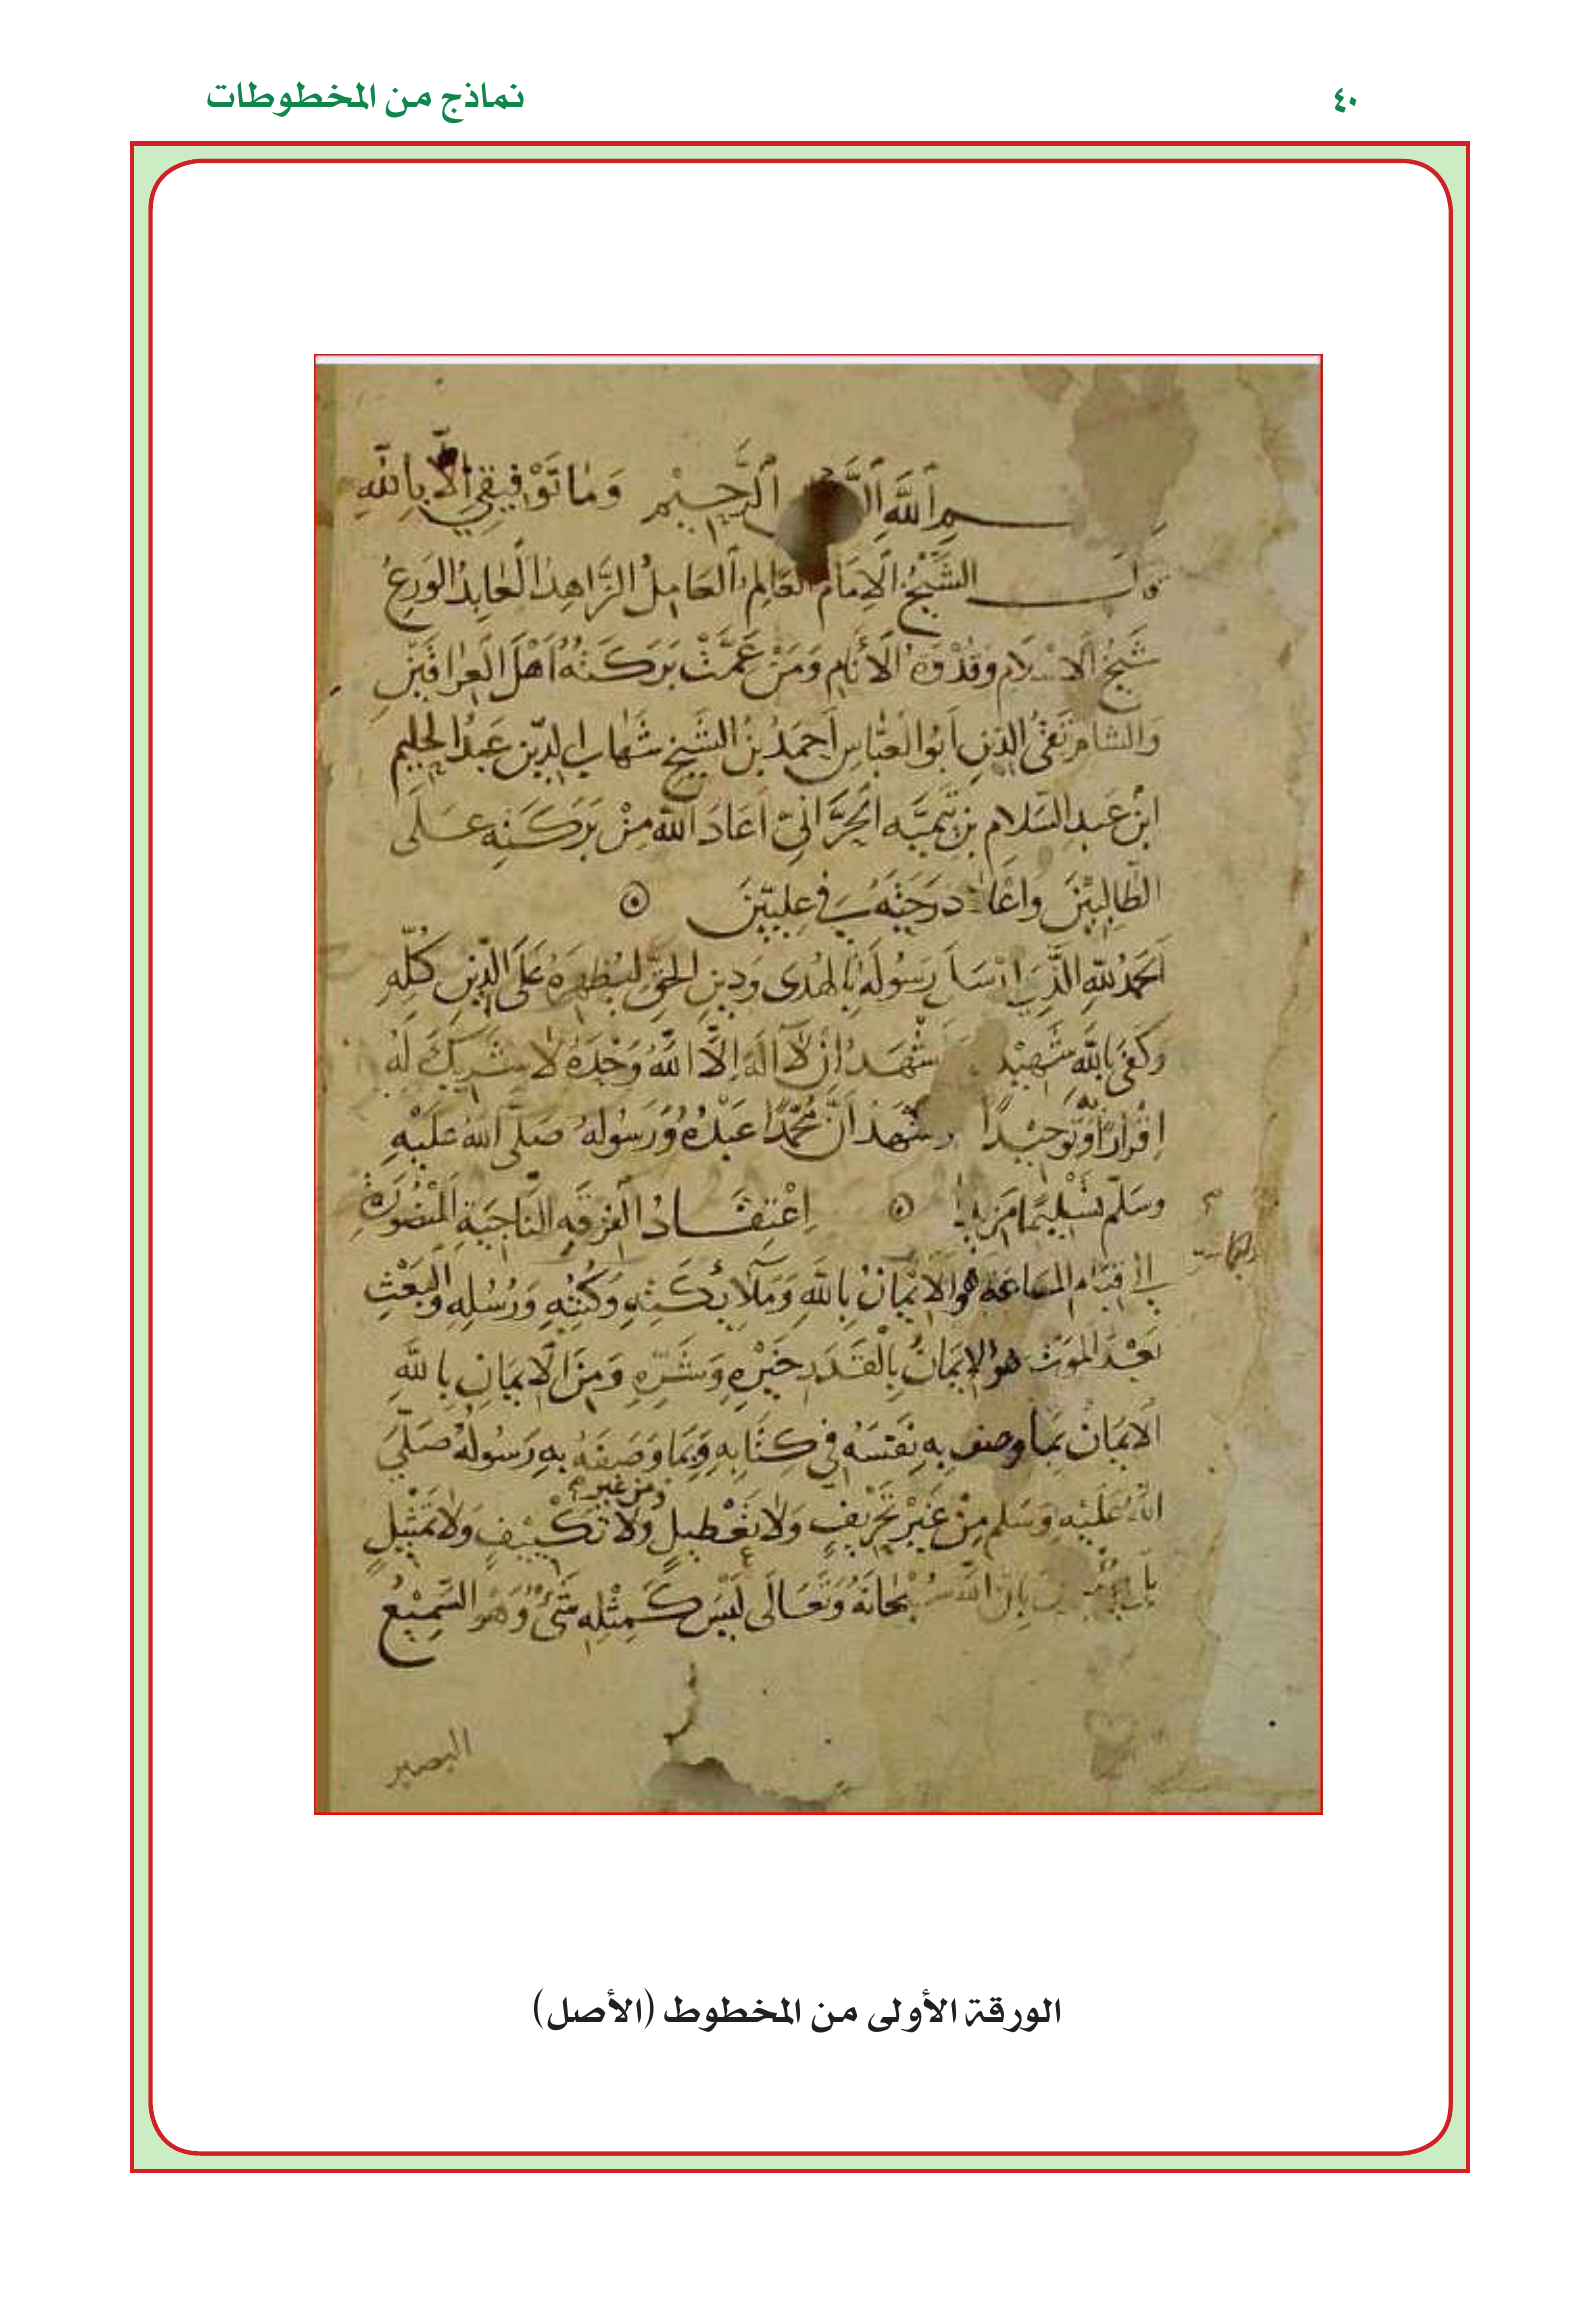 ٤٠
نماذج من المخطوطات
بسم الله الرحيم وما توفيقي الا بالله
قال الشيخ الامام العالم العامل الزاهد العابد الورع
شيخ الاسلام وقدوة الانام ومن عمت بركته اهل العراقين
والشام تقي الدين ابو العباس احمد بن الشيخ شهاب الدين عبد الحليم
ابن عبد السلام بن تيميه الحراني اعاد الله من بركته على
الطالبين درجته في عليين
الحمد لله الذي ارسل رسوله بالهدى ودين الحق ليظهره على الدين كله
وكفى بالله شهيدا اشهد ان لا اله الا الله وحده لا شريك له
اقرارا به وتوحيدا واشهد ان محمدا عبده ورسوله صلى الله عليه
وسلم تسليما مزيدا اعتقاد الفرقه الناجية المنصورة
الى قيام الساعة هو الايمان بالله وملائكته وكتبه ورسله والبعث
بعد الموت هو الايمان بالقدر خيره وشره ومن الايمان بالله
الايمان بما وصف به نفسه في كتابه وبما وصفه به رسوله صلى
ومن غير
الله عليه وسلم من غير تحريف ولا تعطيل ولا تكييف ولا تمثيل
بان الله سبحانه وتعالى ليس كمثله شيء وهو السميع
البصير
الورقة الأولى من المخطوط (الأصل)